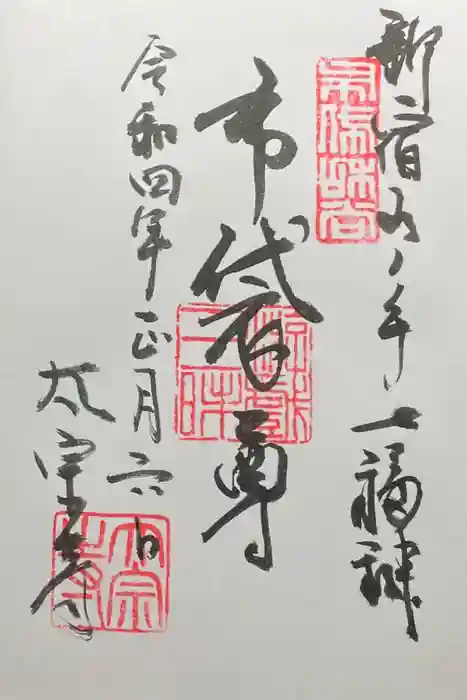 新宿山ノ手七福神
布袋尊
令和四年正月六日
太宗寺
太宗寺